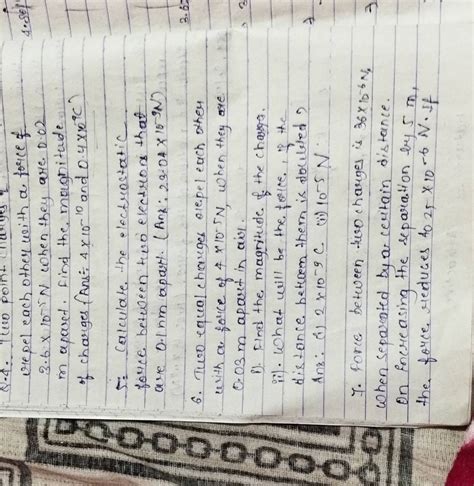 Q.4. Two point charges
repel each other with a force of
3.6 x 10⁻⁵ N when they are 0.02
m apart. Find the magnitude
of charges (Ans: 4 x 10⁻¹⁰ and 0.4 x 10⁻⁸ C)
5. Calculate the electrostatic
force between two electrons that
are 0.1 nm apart. (Ans: 23.04 x 10⁻⁹ N)
6. Two equal charges repel each other
with a force of 4 x 10⁻⁵ N, when they are
0.03 m apart in air.
i) Find the magnitude of the charge.
ii). What will be the force, if the
distance between them is doubled?
Ans: (i) 2 x 10⁻⁹ C ii) 10⁻⁵ N.
7. Force between two charges is 36 x 10⁻⁶ N,
when separated by a certain distance.
On increasing the separation by 5 m,
the force reduces to 25 x 10⁻⁶ N. If